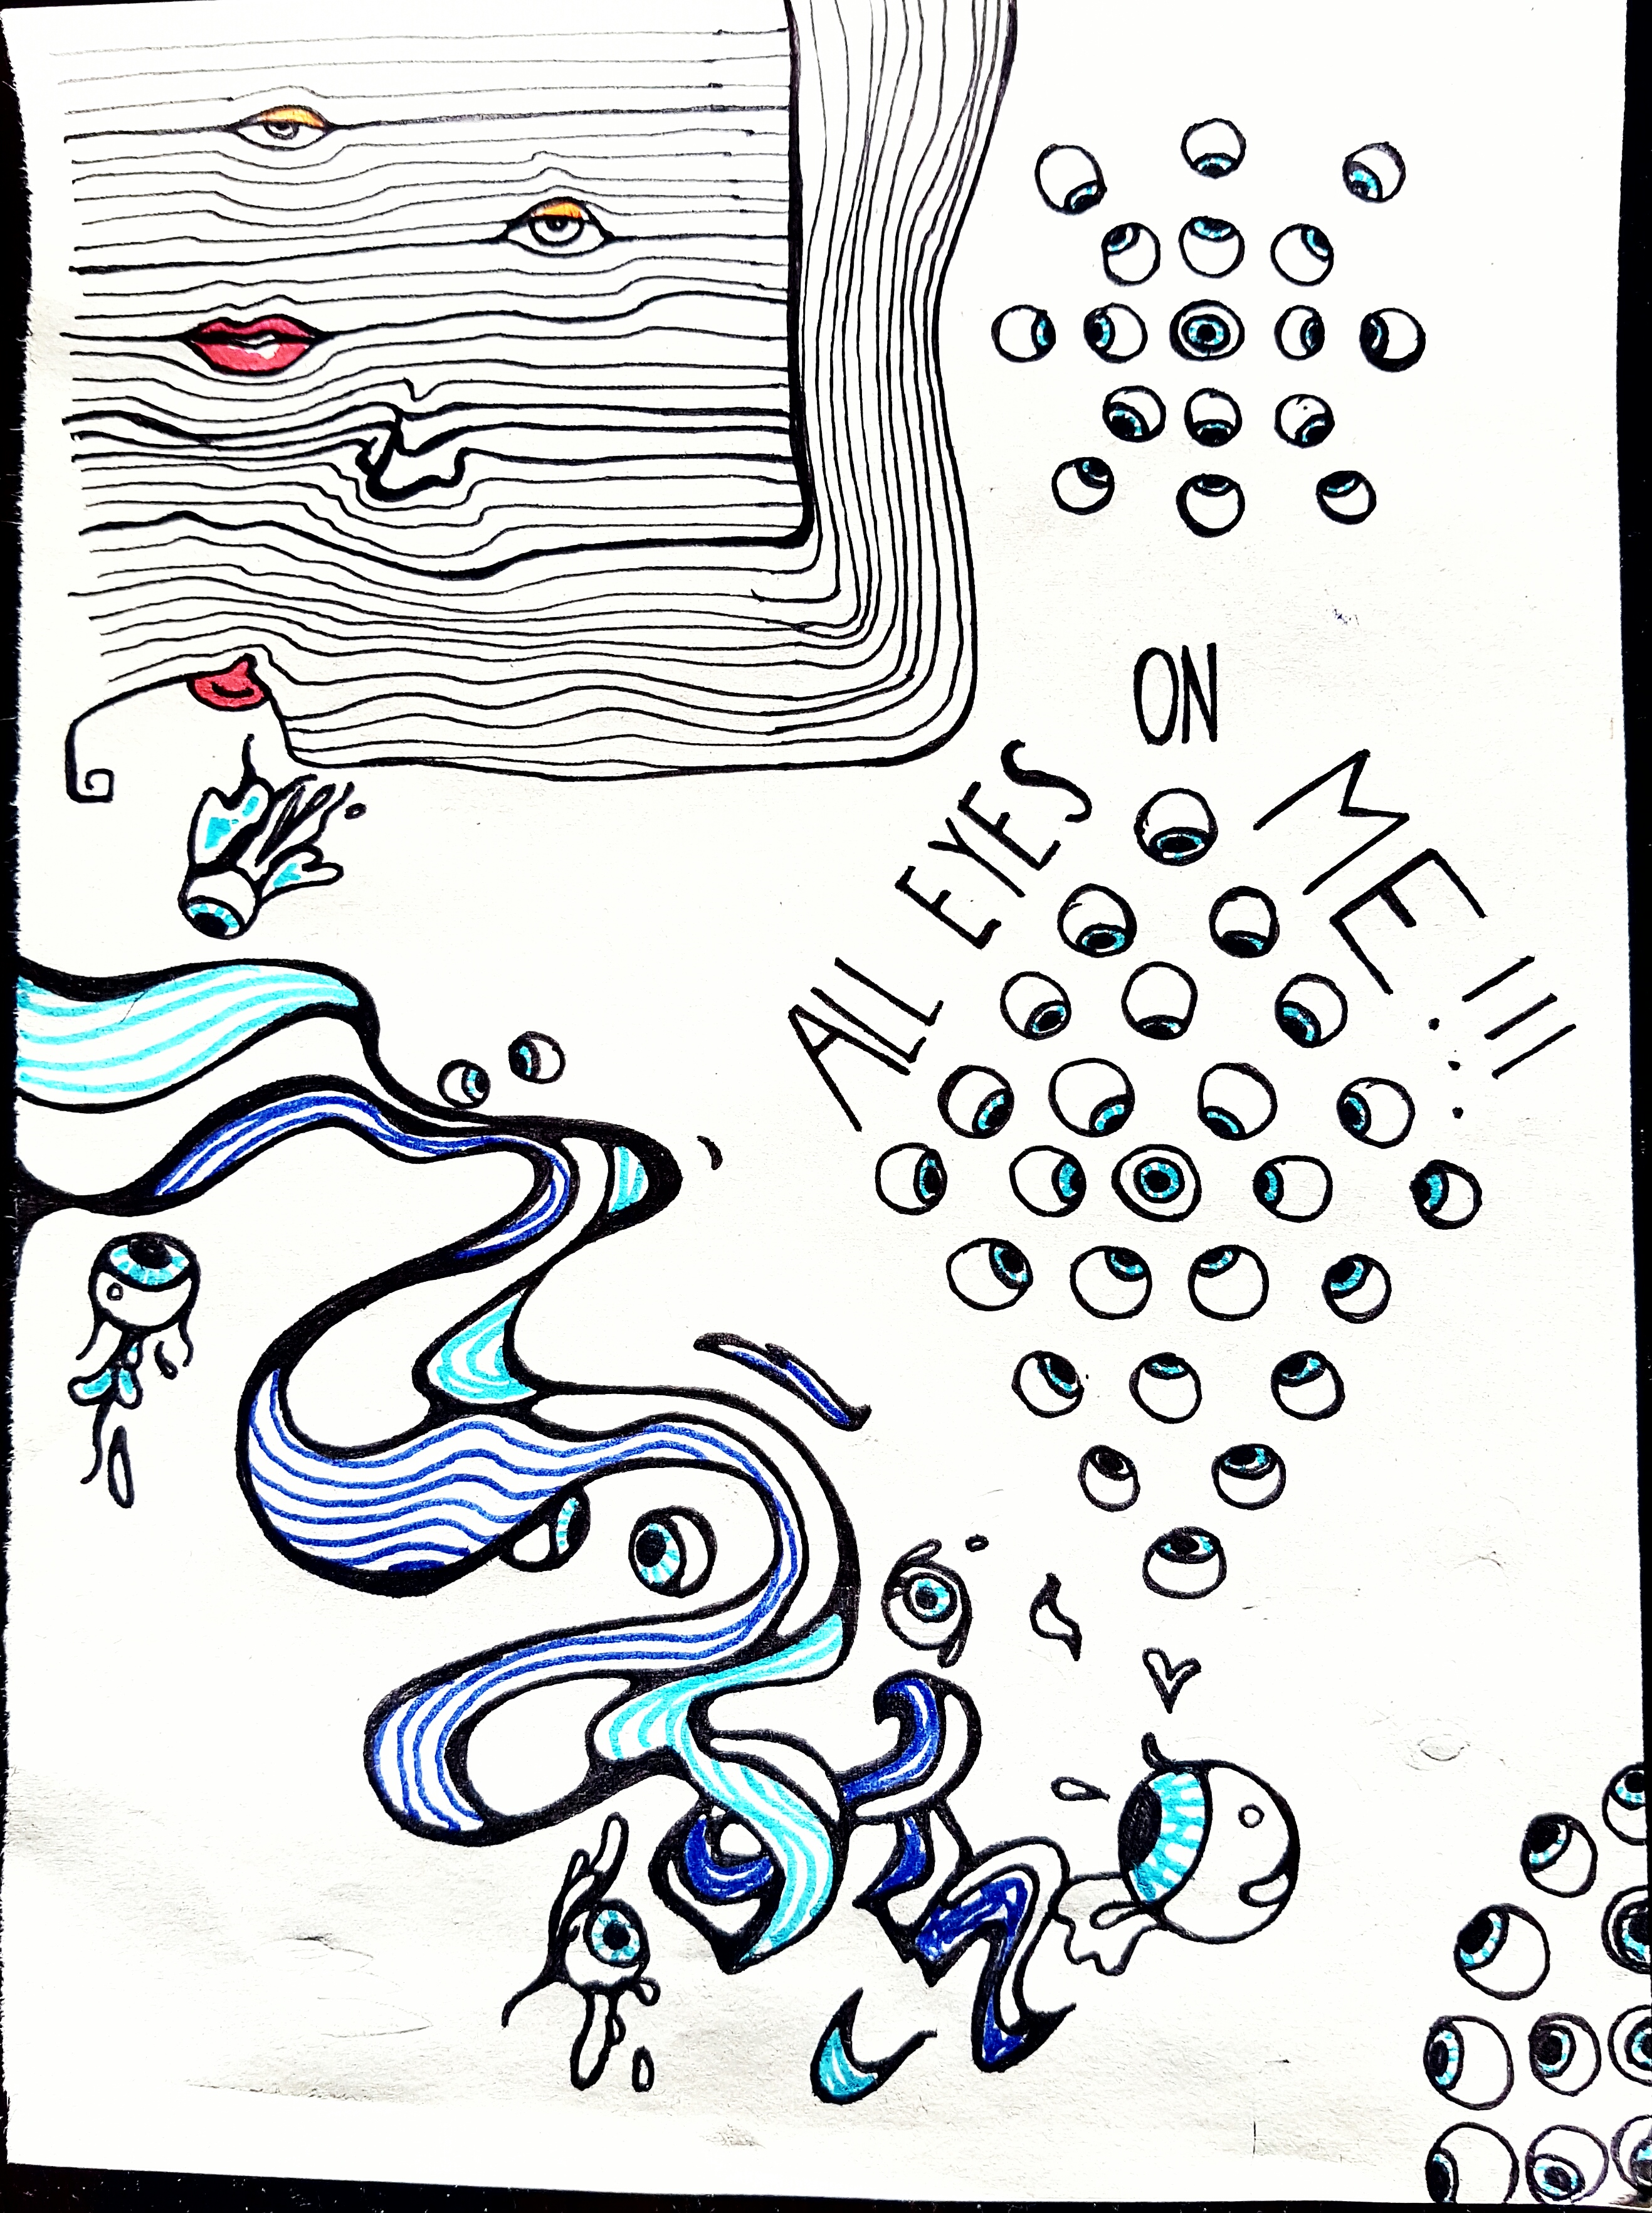 ALL EYES ON ME!!!